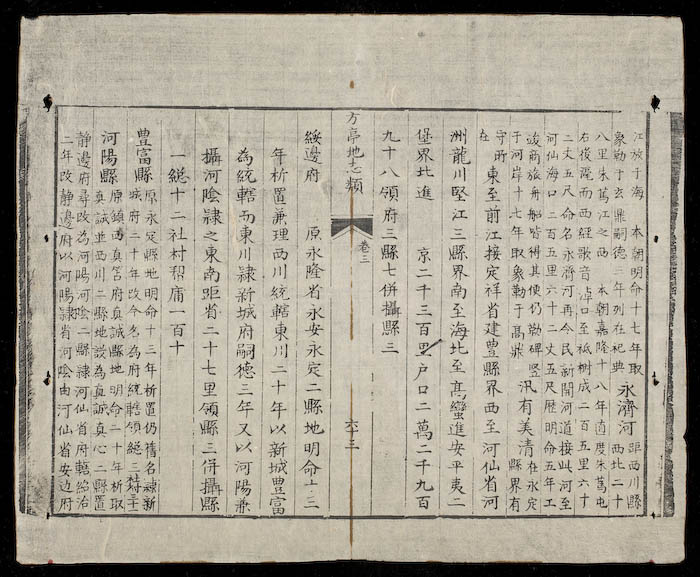 江放于海 本朝明命十七年取
象勒于玄鼎嗣德三年列在祀典
永濟河
距西川縣
西北二十
八里朱萬江之西 本朝嘉隆十八年直度朱萬屯
右後濯而西經歌音淖口至祗樹成二百五里六十
二丈五尺命名永濟河再令民新開河道接此河至
河仙海口二百五里六十二丈五尺歷明命五年工
竣商旅舟船皆得其便仍勒碑竪
于河岸十七年取象勒于髙鼎
汛有美清
在永定
縣界有
守所
在
東至前江接定祥省建豊縣界西至河仙省河
洲龍川堅江三縣界南至海北至髙蠻進安平夷二
堡界北進 京二千三百里户口二萬二千九百
九十八領府三縣七併攝縣三
方亭地志類
卷三
六十三
綏邊府 原永隆省永安永定二縣地明命十三
年析置兼理西川統轄東川二十年以新城豊富
為統轄而東川隸新城府嗣德三年又以河陽兼
攝河陰隸之東南距省二十七里領縣三併攝縣
一緫十二社村帮庸一百十
豊富縣
原永定縣地明命十三年析置仍舊名隸新
城府二十年改今名為府統轄領緫三
河陽縣
原鎮西真笞府真誠縣地明命二十年析取
真誠並西川二縣地設為真誠真心二縣置
静邊府尋改為河陽河陰二縣隸河仙省府轄紹治
二年改静邊府以河陽隸省河陰由河仙省安邊府